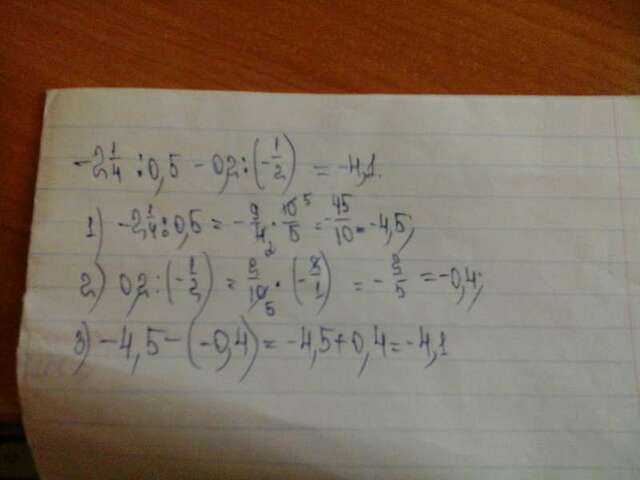 -2 1/4 : 0,5 - 0,2 : (-1/2) = -4,1.
1) -2 1/4 : 0,5 = -9/4 2 · 10 5/5 = -45/10 = -4,5;
2) 0,2 : (-1/2) = 2/10 5 · (-2/1) = -2/5 = -0,4;
3) -4,5 - (-0,4) = -4,5 + 0,4 = -4,1